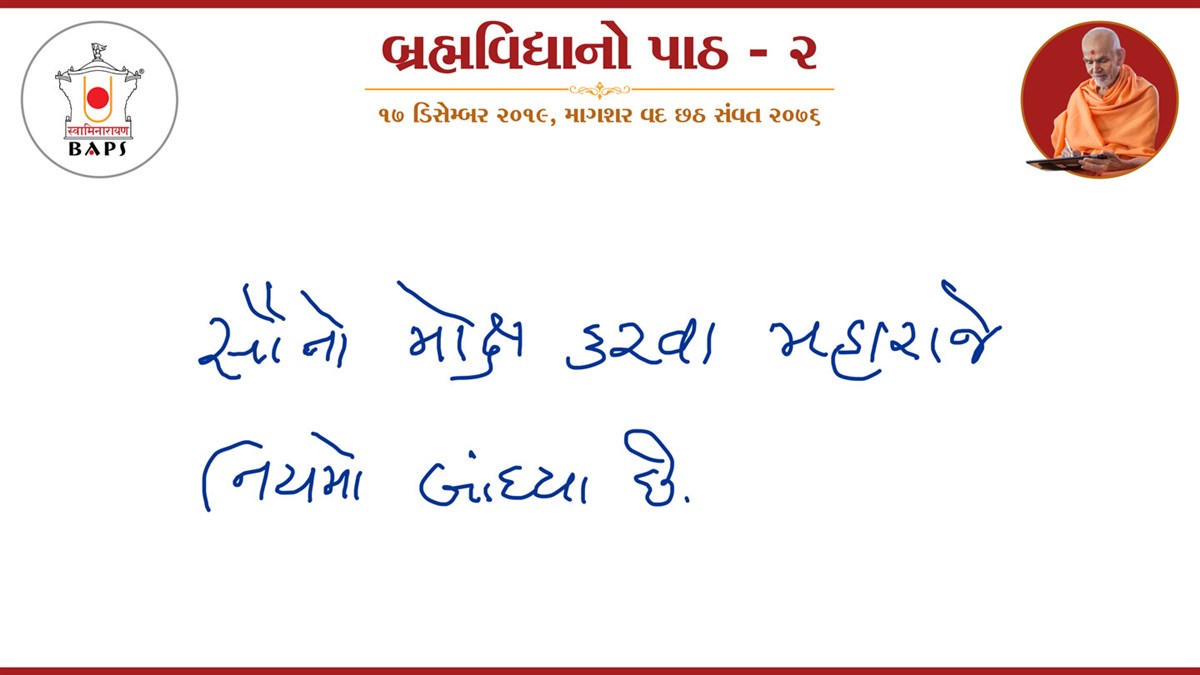 બ્રહ્મવિદ્યાનો પાઠ - ૨
૧૭ ડિસેમ્બર ૨૦૧૯, માગશર વદ છઠ સંવત ૨૦૭૬
स्वामिनारायण
BAPS
®
સૌનો મોક્ષ કરવા મહારાજે
નિયમો બાંધ્યા છે.